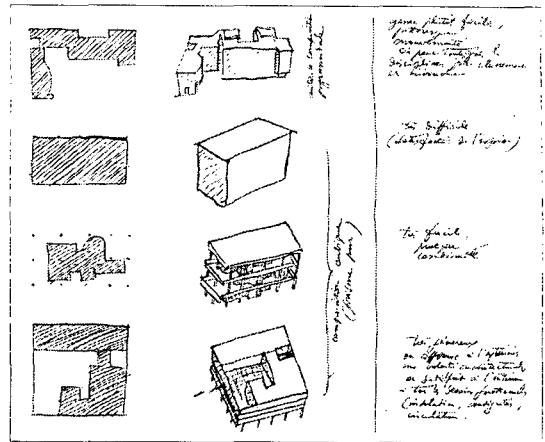 genre plutôt facile,
pittoresque
mouvementé
on peut toutefois le
discipliner par classement
et hiérarchie
très difficile
(satisfaction de l'esprit)
très facile,
composition cubique
(prisme pur)
très généreux
on affirme à l'extérieur
une volonté architecturale
on satisfait à l'intérieur
à tous les besoins fonctionnels
(insolation, contiguïtés,
circulation)